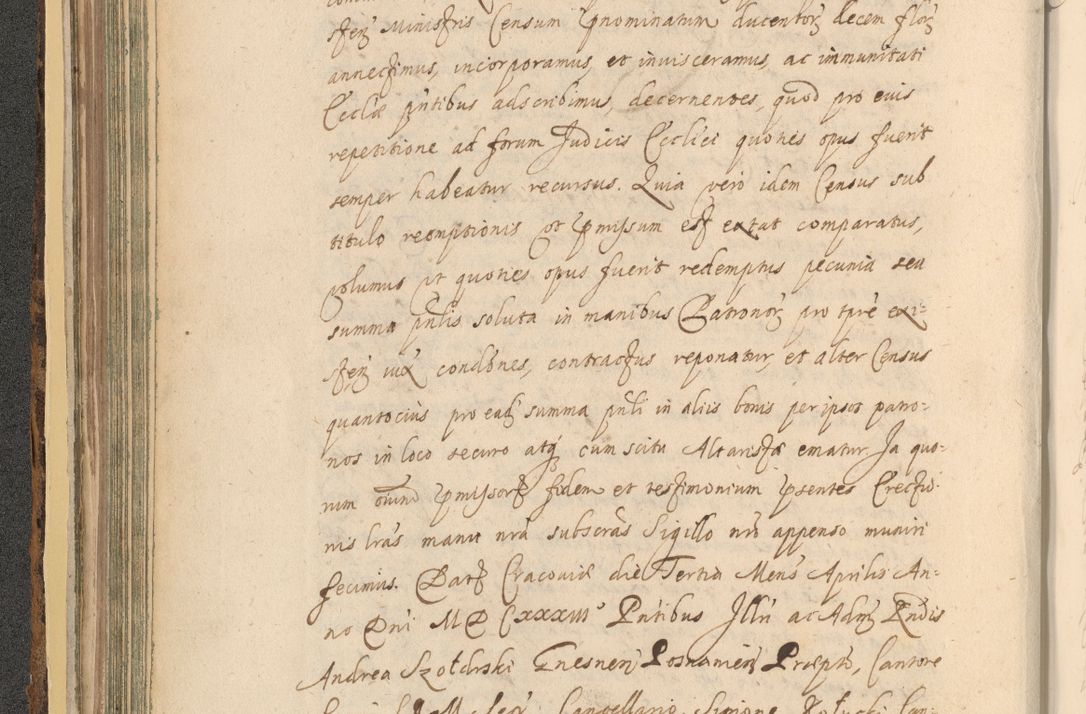 sten Ministris Censum pnominatum ducentor decem flor
annectimus, incorporamus, et invisceramus, ac immunitati
Eccliæ pntibus adscribimus, decernentes, quod pro eius
repetitione ad forum Judicis Eccliei quoties opus fuerit
semper habeatur recursus. Quia vero idem Census sub
titulo reemptionis ut pmissum est extat comparatus,
volumus ut quoties opus fuerit redemptus pecunia seu
summa pnlis soluta in manibus Patronor pro tpre exi-
sten iux condones, contractus reponatur, et alter Census
quantocius pro ead summa pnli in aliis bonis per ipsos patro-
nos in loco securo atq cum scitu Altaristæ ematur. In quo-
rum oium pmissor fidem et testimonium psentes Erectio-
nis lras manu nra subscras Sigillo nro appenso muniri
fecimus. Dat Cracoviæ die Tertia Mens Aprilis An-
no Dni MDCXXXIII Pntibus Illri ac Adm Rndis
Andrea Szołdrski Gnesnen Posnanien Præpto, Cantore
Cancellario, Simone Kołucki Can-